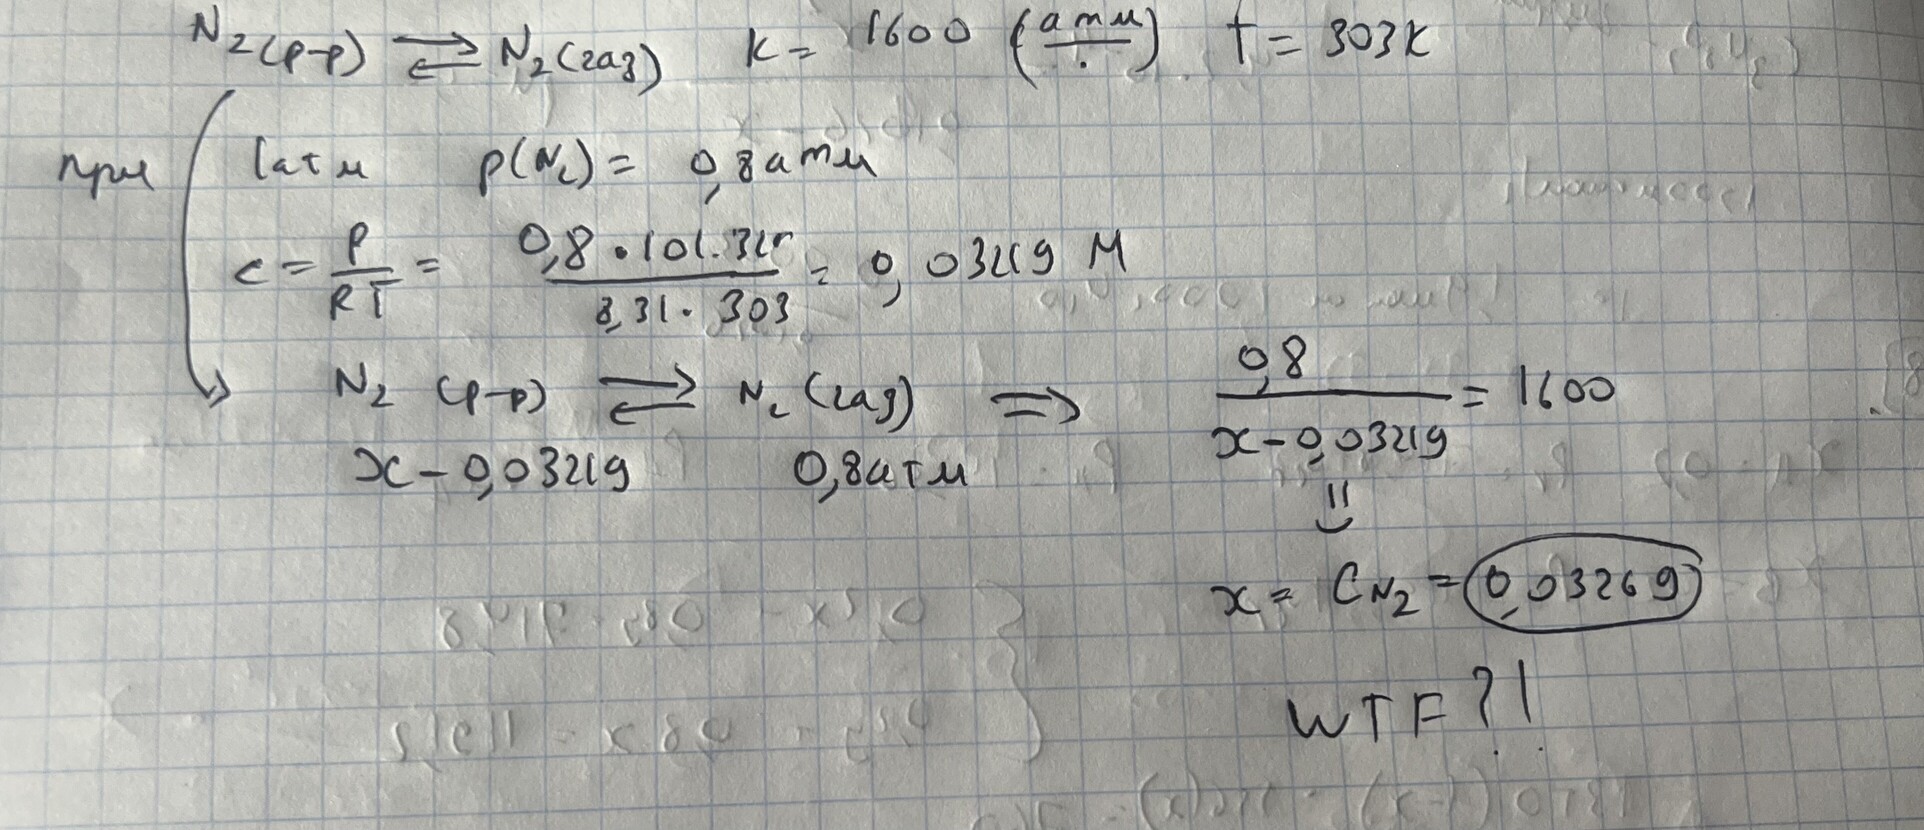 N2(р-р) ⇌ N2(газ) k = 1600 (атм/·) T = 303K
при 1атм p(N2) = 0,8атм
c = P/RT = 0,8·101.325/8,31·303 = 0,03219 M
N2 (р-р) ⇌ N2 (газ) ⇒ 0,8/x-0,03219 = 1600
x-0,03219 0,8атм
x = CN2 = 0,03269
WTF?!